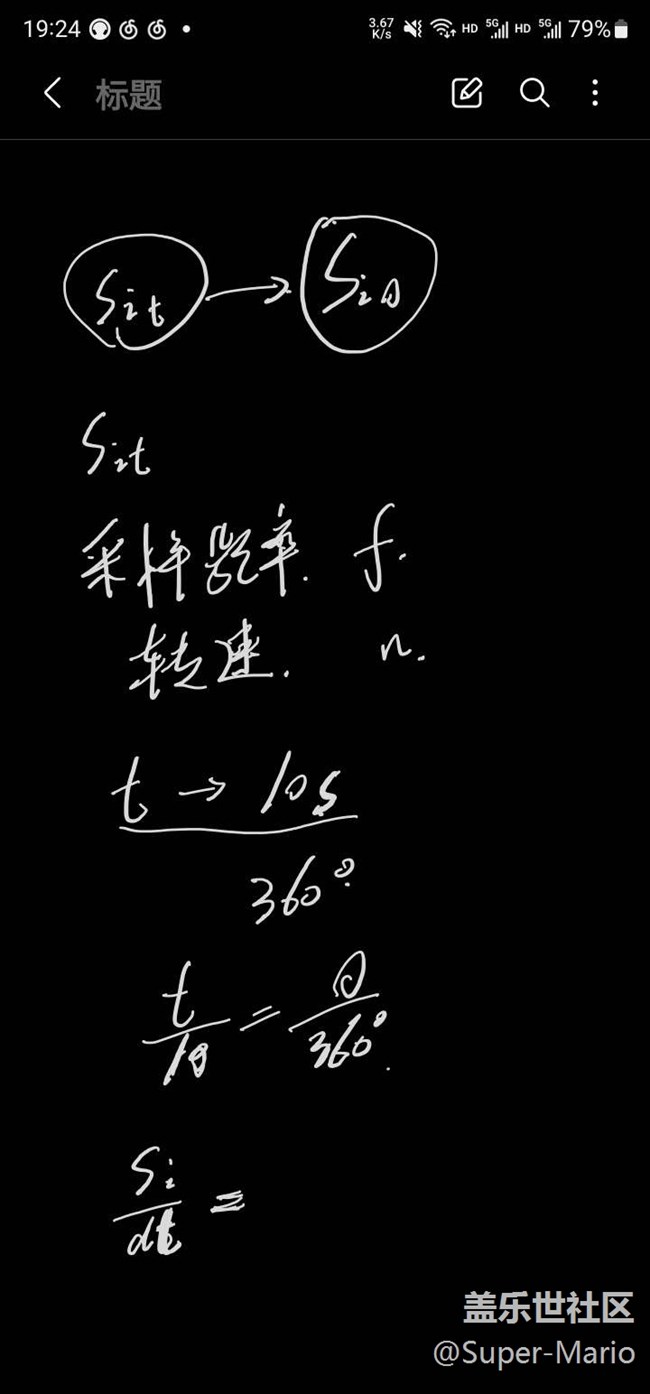 19:24 3.67 K/s HD 5G HD 5G 79%
标题
Sit → Siθ
Sit
采样频率. f.
转速. n.
t → 10s
360°
t/10 = θ/360°.
Si/dt =
盖乐世社区
@Super-Mario